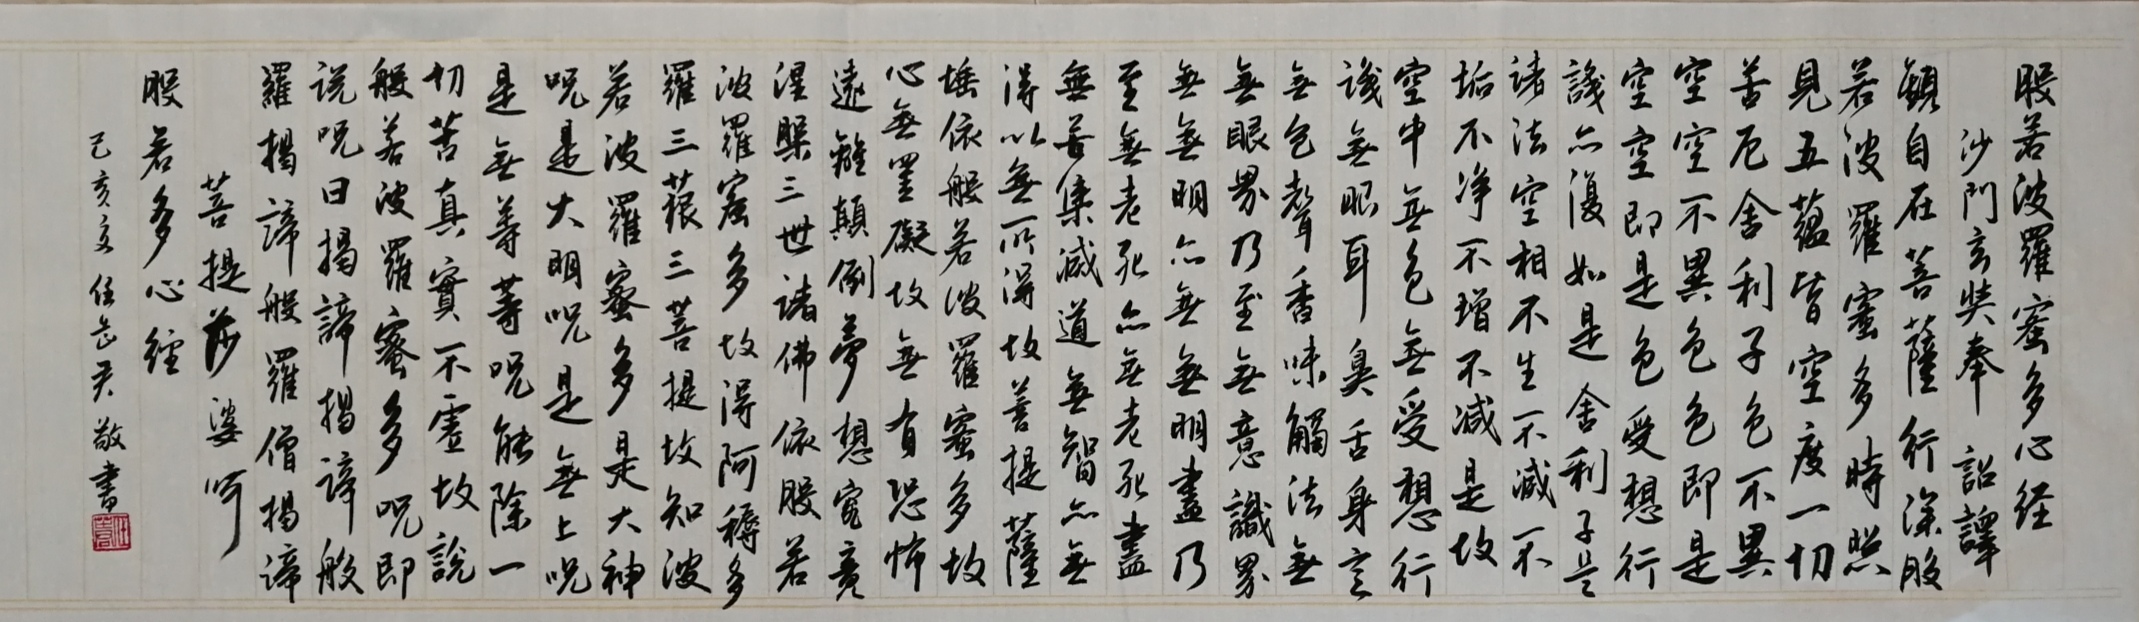 般若波羅蜜多心経
沙門玄奘奉 詔譯
觀自在菩薩行深般
若波羅蜜多時照
見五蘊皆空度一切
苦厄舍利子色不異
空空不異色色即是
空空即是色受想行
識亦復如是舍利子是
諸法空相不生不滅不
垢不净不增不減是故
空中無色無受想行
識無眼耳鼻舌身意
無色聲香味觸法無
無眼界乃至無意識界
無無明亦無無明盡乃
至無老死亦無老死盡
無苦集滅道無智亦無
得以無所得故菩提薩
埵依般若波羅蜜多故
心無罣礙故無有恐怖
遠離顛倒夢想究竟
涅槃三世諸佛依般若
波羅蜜多故得阿耨多
羅三藐三菩提故知波
若波羅蜜多是大神
呪是大明呪是無上呪
是無等等呪能除一
切苦真實不虛故説
般若波羅蜜多呪即
说呪曰揭諦揭諦般
羅揭諦般羅僧揭諦
菩提莎婆呵
般若多心經
己亥文任岳君敬書